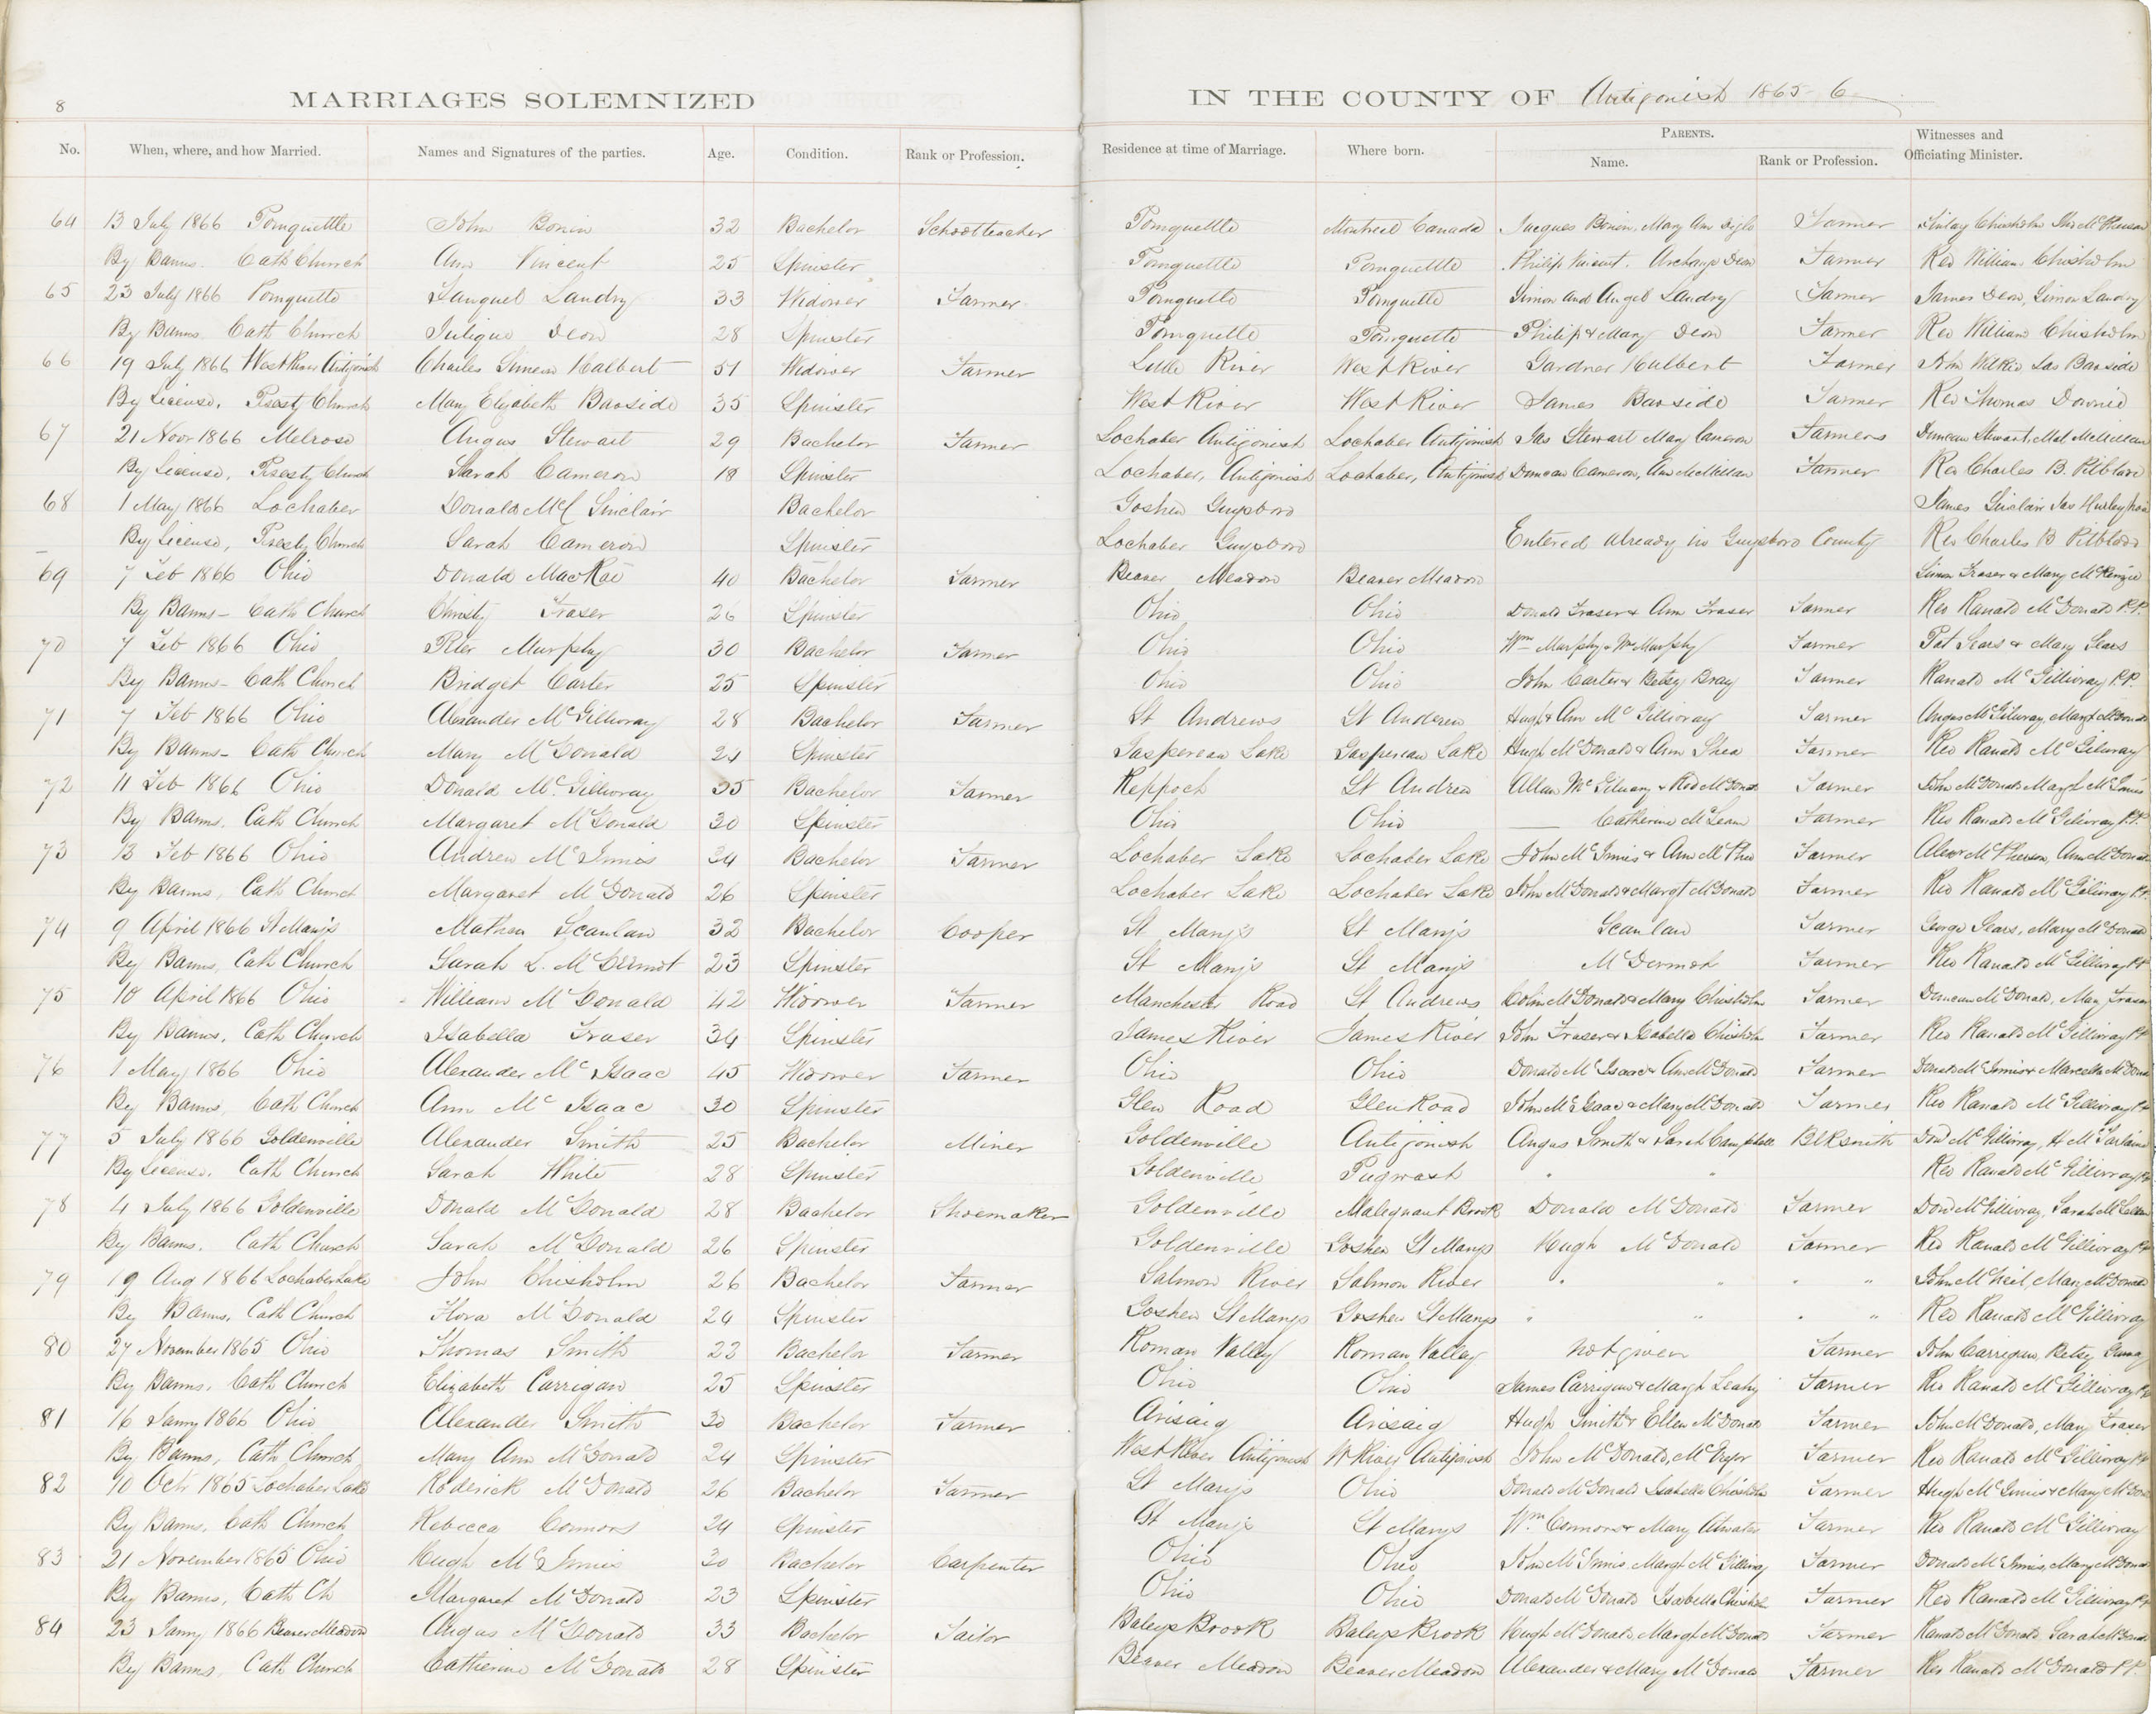 8
MARRIAGES SOLEMNIZED IN THE COUNTY OF Antigonish 1865-6
No. When, where, and how Married. Names and Signatures of the parties. Age. Condition. Rank or Profession. Residence at time of Marriage. Where born. PARENTS. Name. Rank or Profession. Witnesses and Officiating Minister.
64 13 July 1866 Pomquette John Bonin 32 Bachelor Schoolteacher Pomquette Montreal Canada Jacques Bonin, Mary Ann Farmer Finlay Chisholm
By Banns. Cath Church Ann Vincent 25 Spinster Pomquette Pomquette Philip Vincent. Deon Farmer Rev William Chisholm
65 23 July 1866 Pomquette Landry 33 Widower Farmer Pomquette Pomquette Simon and Angel Landry Farmer James Deon, Simon Landry
By Banns Cath Church Deon 28 Spinster Pomquette Pomquette Philip & Mary Deon Farmer Rev William Chisholm
66 19 July 1866 West River Antigonish Charles Simeon Halbert 51 Widower Farmer Little River West River Gardner Farmer Jno Wilkie Jas Baxside
By License, Presbty Church Mary Elizabeth Baxside 35 Spinster West River West River James Baxside Farmer Rev Thomas Downie
67 21 Novr 1866 Melrose Angus Stewart 29 Bachelor Farmer Lochaber Antigonish Lochaber Antigonish Jas Stewart Mary Cameron Farmers Duncan Stewart, McMillan
By License, Presbty Church Sarah Cameron 18 Spinster Lochaber, Antigonish Lochaber, Antigonish Duncan Cameron, Ann McMillan Farmer Rev Charles B. Pitblado
68 1 May 1866 Lochaber Donald McL Sinclair Bachelor Goshen Guysboro James Sinclair Jas
By License, Presby Church Sarah Cameron Spinster Lochaber Guysboro Entered already in Guysboro County Rev Charles B Pitblado
69 7 Feb 1866 Ohio Donald MacRae 40 Bachelor Farmer Beaver Meadow Beaver Meadow Simon Fraser & Mary McKenzie
By Banns - Cath Church Christy Fraser 26 Spinster Ohio Ohio Donald Fraser & Ann Fraser Farmer Rev Ranald McDonald P.P.
70 7 Feb 1866 Ohio Peter Murphy 30 Bachelor Farmer Ohio Ohio Wm Murphy & Murphy Farmer Pat Sears & Mary Sears
By Banns - Cath Church Bridget Carter 25 Spinster Ohio Ohio John Carter & Betsy Bray Farmer Ranald McGillivray P.P.
71 7 Feb 1866 Ohio Alexander McGillivray 28 Bachelor Farmer St Andrews St Andrew Hugh & Ann McGillivray Farmer Angus McGilvray, Margt McDonald
By Banns - Cath Church Mary McDonald 24 Spinster Gaspereau Lake Gaspereau Lake Hugh McDonald & Ann Shea Farmer Rev Ranald McGilvray
72 11 Feb 1866 Ohio Donald McGillivray 35 Bachelor Farmer Keppoch St Andrew Allan McGilvary & McDonald Farmer John McDonald Margt McInnis
By Banns, Cath Church Margaret McDonald 30 Spinster Ohio Ohio Catherine McLean Farmer Rev Ranald McGilivray P.P.
73 13 Feb 1866 Ohio Andrew McInnis 34 Bachelor Farmer Lochaber Lake Lochaber Lake John McInnis & Ann McPhee Farmer Alexr McPherson, Ann McDonald
By Banns, Cath Church Margaret McDonald 26 Spinster Lochaber Lake Lochaber Lake John McDonald & Margt McDonald Farmer Rev Ranald McGilivray P.P.
74 9 April 1866 St Marys Mathew Scanlan 32 Bachelor Cooper St Mary's St Mary's Scanlan Farmer George Sears, Mary McDonald
By Banns, Cath Church Sarah L. McDermot 23 Spinster St Mary's St Mary's McDermot Farmer Rev Ranald McGillivray P.P.
75 10 April 1866 Ohio William McDonald 42 Widower Farmer Manchester Road St Andrews Colin McDonald & Mary Chisholm Farmer Duncan McDonald, Mary Fraser
By Banns, Cath Church Isabella Fraser 34 Spinster James River James River John Fraser & Isabella Chisholm Farmer Rev Ranald McGillivray P.P.
76 1 May 1866 Ohio Alexander McIsaac 45 Widower Farmer Ohio Ohio Donald McIsaac & Ann McDonald Farmer Donald McInnis & Marcella McDonald
By Banns, Cath Church Ann McIsaac 30 Spinster Glen Road Glen Road John McIsaac & Mary McDonald Farmer Rev Ranald McGillivray P.P.
77 5 July 1866 Goldenville Alexander Smith 25 Bachelor Miner Goldenville Antigonish Angus Smith & Sarah Campbell Blksmith Don McGillivray, H McFarlane
By License, Cath Church Sarah White 28 Spinster Goldenville Pugwash " " Rev Ranald McGillivray P.P.
78 4 July 1866 Goldenville Donald McDonald 28 Bachelor Shoemaker Goldenville Malegnant Brook Donald McDonald Farmer Don McGillivray, Sarah McLellan
By Banns, Cath Church Sarah McDonald 26 Spinster Goldenville Goshen St Marys Hugh McDonald Farmer Rev Ranald McGillivray P.P.
79 19 Aug 1866 Lochaber Lake John Chisholm 26 Bachelor Farmer Salmon River Salmon River " " " " John McNeil, Mary McDonald
By Banns, Cath Church Flora McDonald 24 Spinster Goshen St Marys Goshen St Marys " " " " Rev Ranald McGillivray
80 27 November 1865 Ohio Thomas Smith 22 Bachelor Farmer Roman Valley Roman Valley not given Farmer John Carrigan, Betsy
By Banns, Cath Church Elizabeth Carrigan 25 Spinster Ohio Ohio James Carrigan & Margt Leahy Farmer Rev Ranald McGillivray P.P.
81 16 Janry 1866 Ohio Alexander Smith 30 Bachelor Farmer Arisaig Arisaig Hugh Smith & Ellen McDonald Farmer John McDonald, Mary Fraser
By Banns, Cath Church Mary Ann McDonald 24 Spinster West River Antigonish W River Antigonish John McDonald, Farmer Rev Ranald McGillivray P.P.
82 10 Octr 1865 Lochaber Lake Roderick McDonald 26 Bachelor Farmer St Marys Ohio Donald McDonald Isabella Chisholm Farmer Hugh McInnis & Mary McDonald
By Banns, Cath Church Rebecca Connors 24 Spinster St Marys St Marys Wm Connors & Mary Atwater Farmer Rev Ranald McGillivray
83 21 November 1865 Ohio Hugh McInnis 30 Bachelor Carpenter Ohio Ohio John McInnis, Margt McGillivray Farmer Donald McInnis, Mary McDonald
By Banns, Cath Ch Margaret McDonald 23 Spinster Ohio Ohio Donald McDonald Isabella Chisholm Farmer Rev Ranald McGillivray P.P.
84 23 Janry 1866 Beaver Meadow Angus McDonald 33 Bachelor Tailor Baleys Brook Baleys Brook Hugh McDonald, Margt McDonald Farmer Ranald McDonald Sarah McDonald
By Banns, Cath Church Catherine McDonald 28 Spinster Beaver Meadow Beaver Meadow Alexander & Mary McDonald Farmer Rev Ranald McDonald P.P.